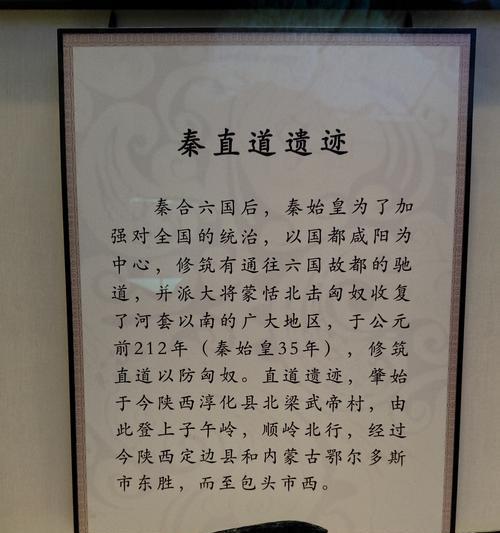 秦直道遗迹
秦合六国后，秦始皇为了加
强对全国的统治，以国都咸阳为
中心，修筑有通往六国故都的驰
道，并派大将蒙恬北击匈奴收复
了河套以南的广大地区，于公元
前212年（秦始皇35年），修筑
直道以防匈奴。直道遗迹，肇始
于今陕西淳化县北梁武帝村，由
此登上子午岭，顺岭北行，经过
今陕西定边县和内蒙古鄂尔多斯
市东胜，而至包头市西。